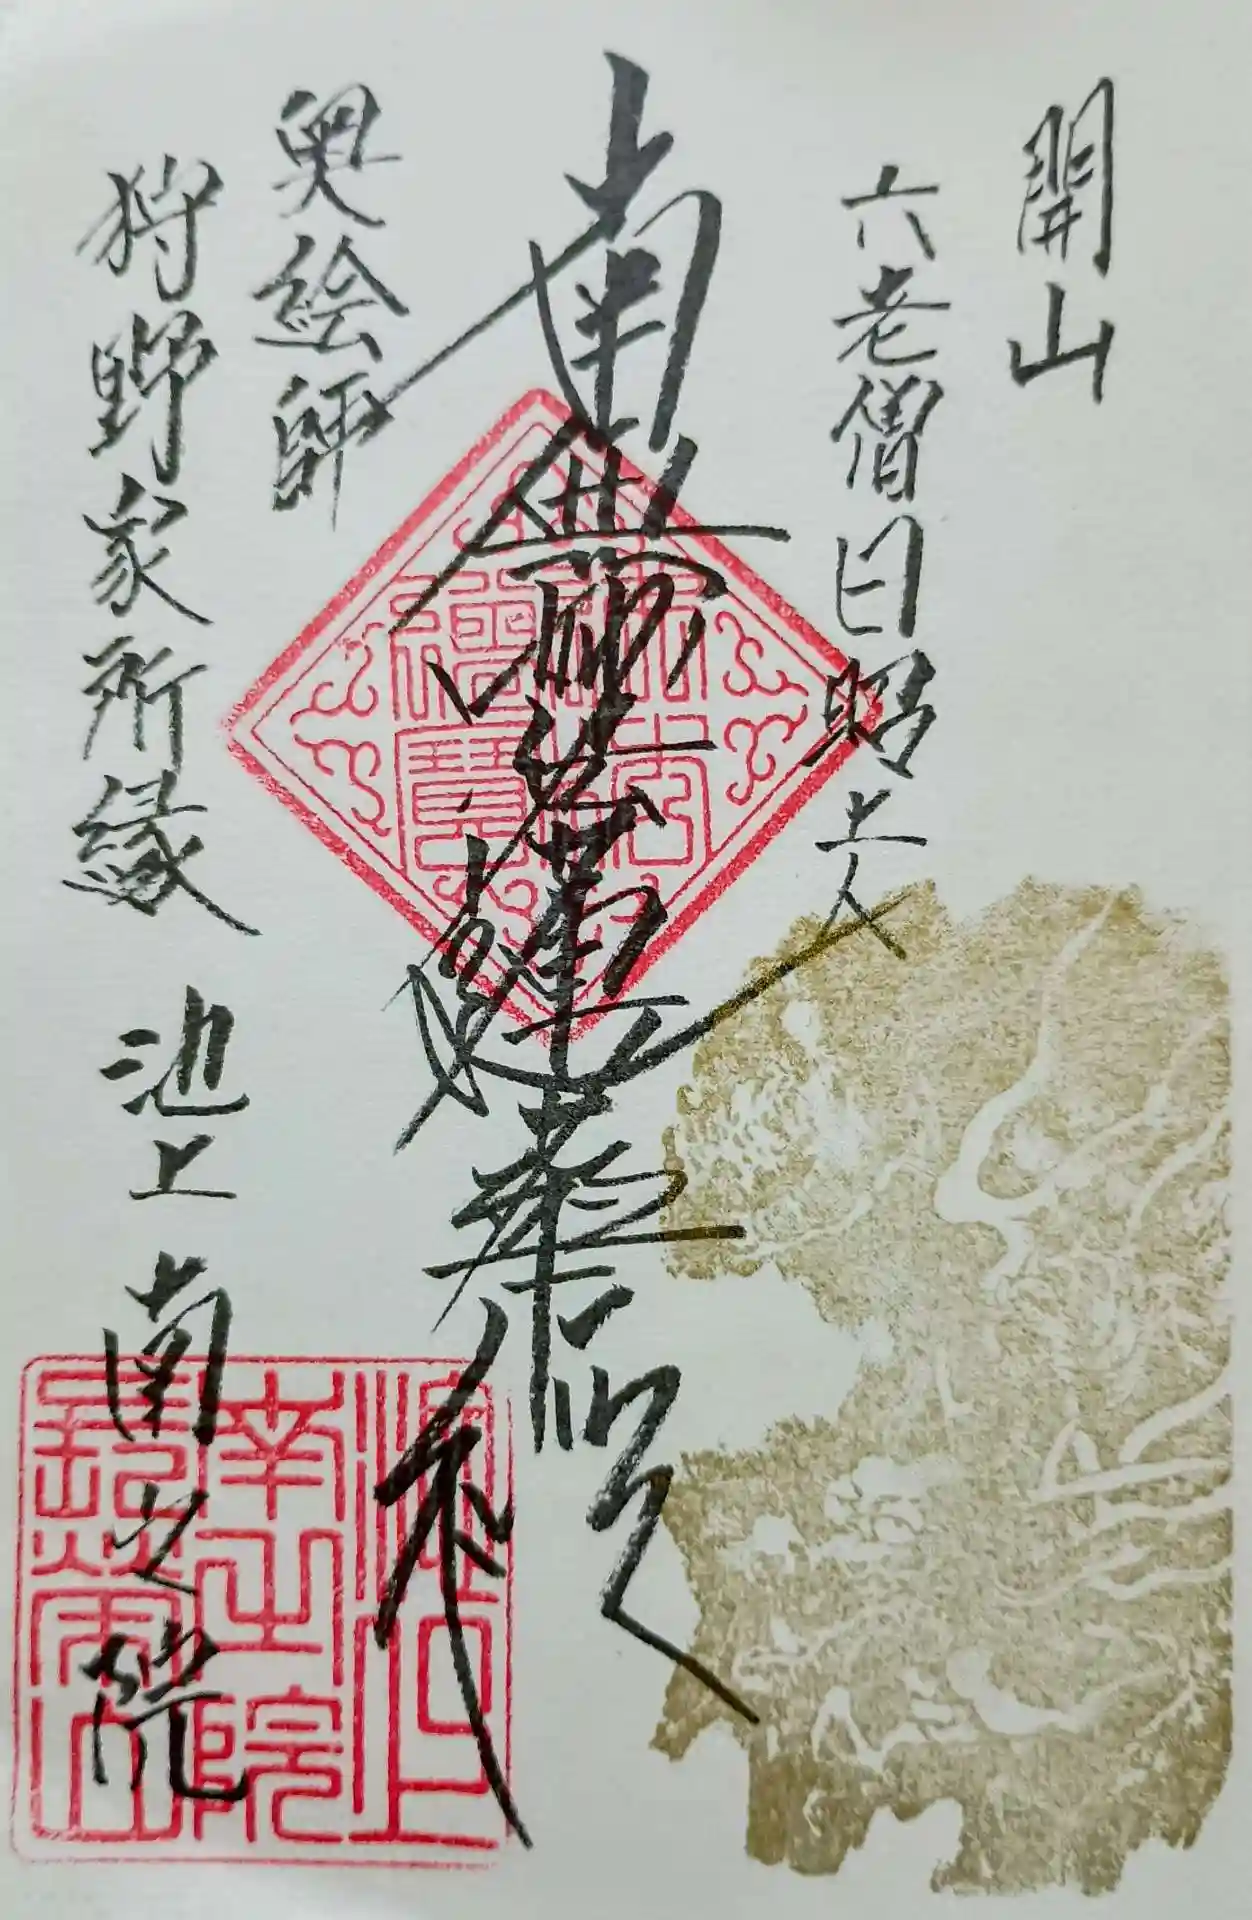 開山
六老僧日昭上人
南無妙法蓮華経
奥絵師
狩野家所縁 池上 南之院
池上
南之院
長栄山